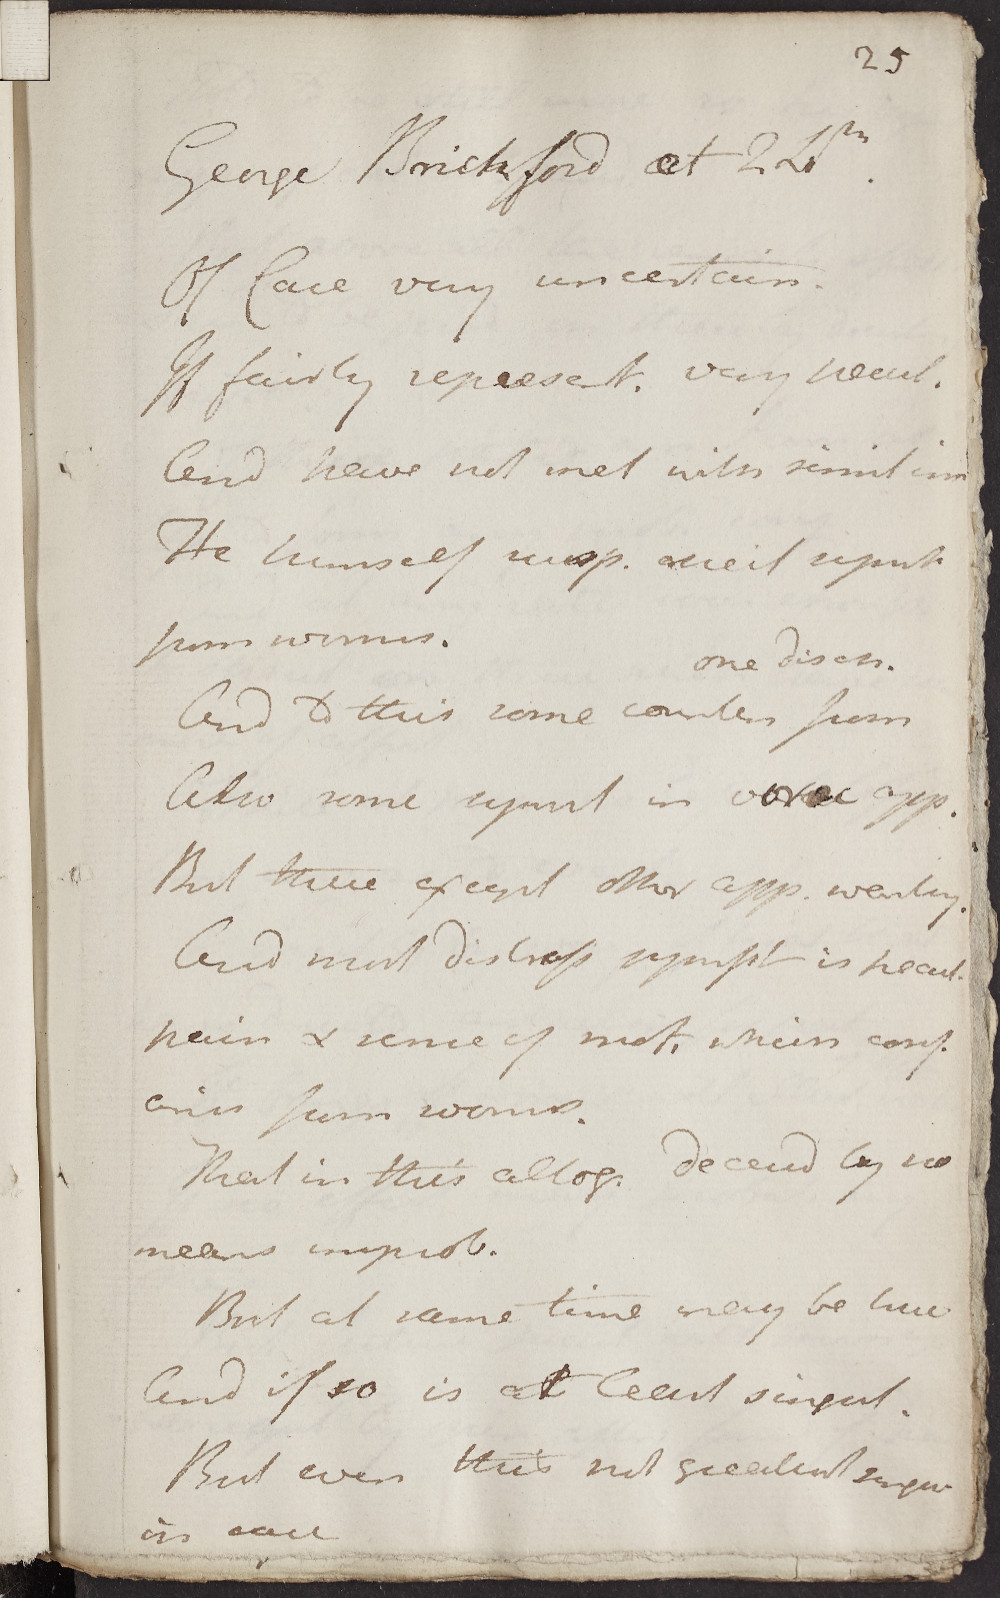 25
George Brickford aet 24
Of Case very uncertain.
If fairly represent. very pecul.
And have not met with simil
He himself susp. all
from worms.
one disch.
And to this some counten from
Also some in app.
But these except other app. wanting.
And most distress sympt is pecul.
pain & sense of mot. which conf.
arises from worms.
That in this altog. deceived by no
means improb.
But at same time may be true
And if so is at least singul.
But even this not greatest
in case